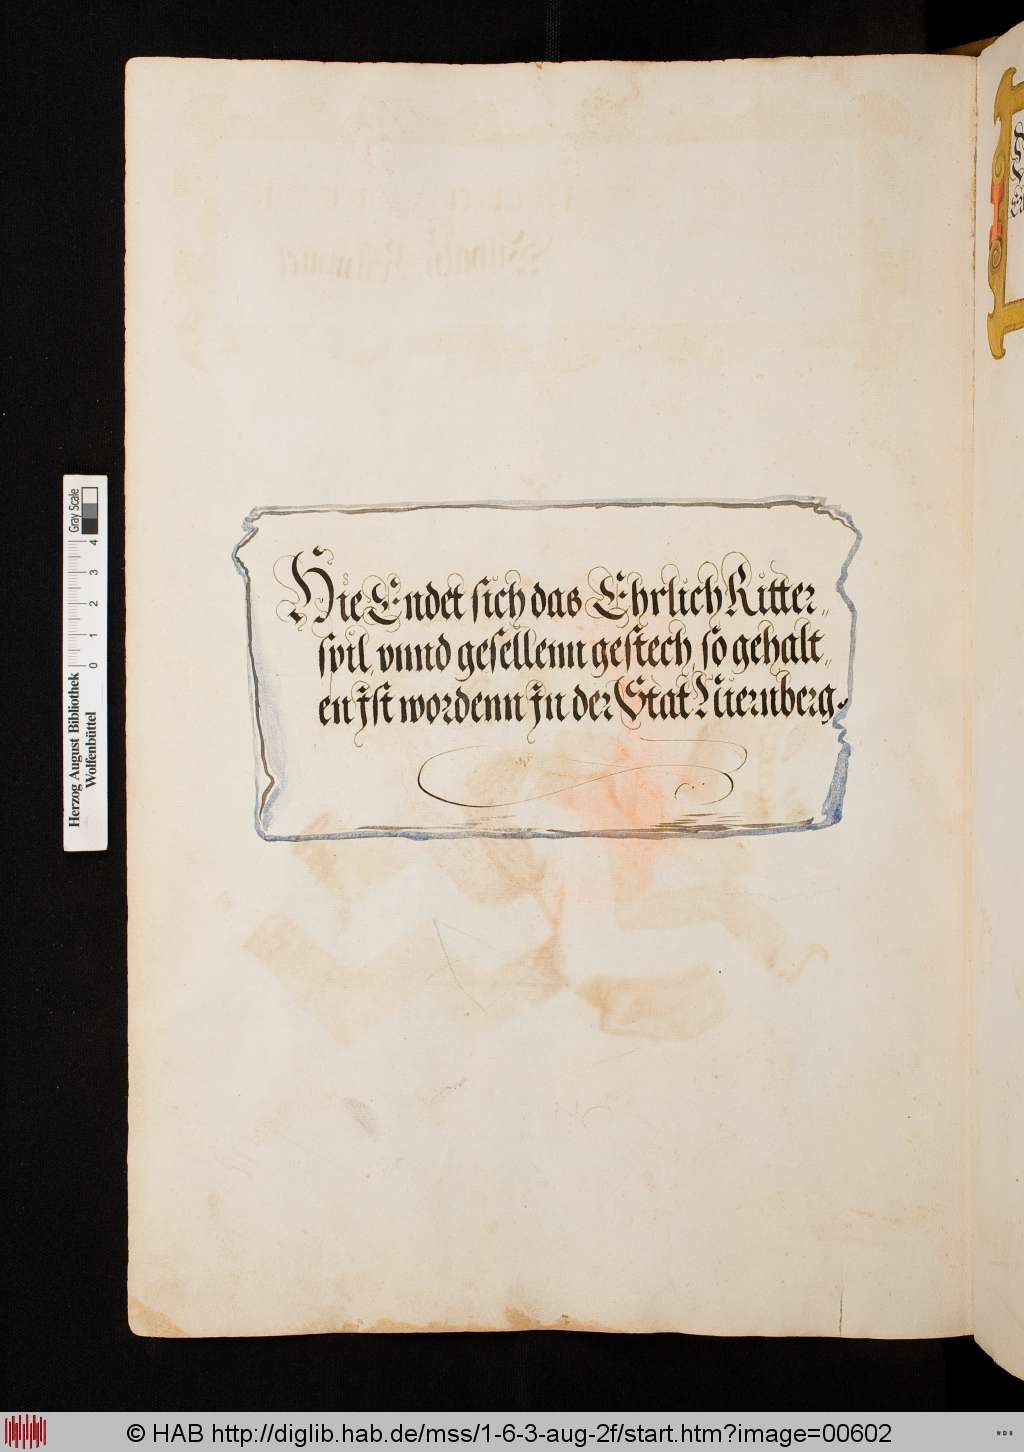 Hie Endet sich das Ehrlich Ritter„
spil, vnnd gesellenn gestech, so gehalt„
en Ist wordenn In der Stat Niernberg.
Herzog August Bibliothek
Wolfenbüttel
0 1 2 3 4
Gray Scale
© HAB http://diglib.hab.de/mss/1-6-3-aug-2f/start.htm?image=00602